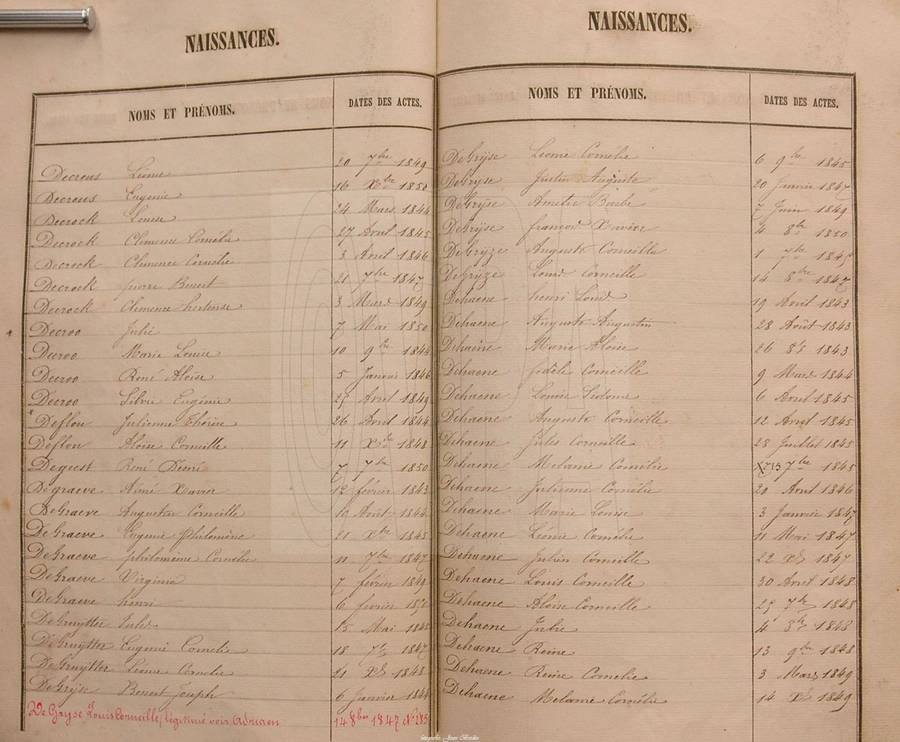 NAISSANCES.
NOMS ET PRÉNOMS. DATES DES ACTES.
Decreus Léonie 20 7bre 1849
Decreus Eugénie 16 Xbre 1850
Decrock Louise 24 Mars 1844
Decrock Clemence Cornélie 27 Avril 1845
Decrock Clemence Cornélie 3 Avril 1846
Decrock Pierre Benoit 21 7bre 1847
Decrock Clemence hortense 3 Mars 1849
Decroo Julie 7 Mai 1850
Decroo Marie Louise 10 9bre 1844
Decroo René Aloïse 5 Janvier 1846
Decroo Silvie Eugénie 27 Avril 1849
Deflou Julienne 26 Avril 1844
Deflou Aloïse Corneille 11 Xbre 1848
Degeest René 7 7bre 1850
Degraeve Aimé Xavier 12 février 1843
DeGraeve Augustin Corneille Août 1844
DeGraeve Eugénie philomène 21 Xbre 1845
DeGraeve philomène Cornélie 11 7bre 1847
DeGraeve Virginie 7 février 1849
DeGraeve henri 6 février
DeGruÿtter Jules 15 Mai 1845
DeGruÿtter Eugenie Cornelie 18 7bre 1847
DeGruÿtter Léonie Cornelie 21 Xbre 1848
DeGrÿse Benoit Joseph 6 Janvier 1844
De Gryse Louis Corneille, légitimé voir 14 8bre 1847 N° 285
NAISSANCES.
NOMS ET PRÉNOMS. DATES DES ACTES.
DeGrÿse Léonie Cornelie 6 9bre 1845
DeGryse Justin Auguste 20 Janvier 1847
DeGrÿse Amelie Barbe 7 Juin 1849
DeGrÿse françois Xavier 4 8bre 1850
DeGryze Auguste Corneille 1 7bre
DeGrÿze Louis Corneille 14 8bre 1847
Dehaene henri Louis 19 Avril 1843
Dehaene Auguste Augustin 28 Août 1843
Dehaene Marie Aloïse 26 8bre 1843
Dehaene fidèle Corneille 9 Mars 1844
Dehaene Louise Sidonie 6 Avril 1845
Dehaene Auguste Corneille 12 Avril 1845
Dehaene Jules Corneille 28 Juillet 1845
Dehaene Melanie Cornélie 13 7bre 1845
Dehaene Julienne Cornélie 20 Avril 1846
Dehaene Marie Louise 3 Janvier 1847
Dehaene Léonie Cornélie 11 Mai 1847
Dehaene Julien Corneille 22 Xbre 1847
Dehaene Louis Corneille 30 Avril 1848
Dehaene Aloïse Corneille 27 7bre 1848
Dehaene Julie 4 8bre 1848
Dehaene Reine 13 9bre 1848
Dehaene Reine Cornelie 3 Mars 1849
Dehaene Melanie Cornélie 14 Xbre 1849